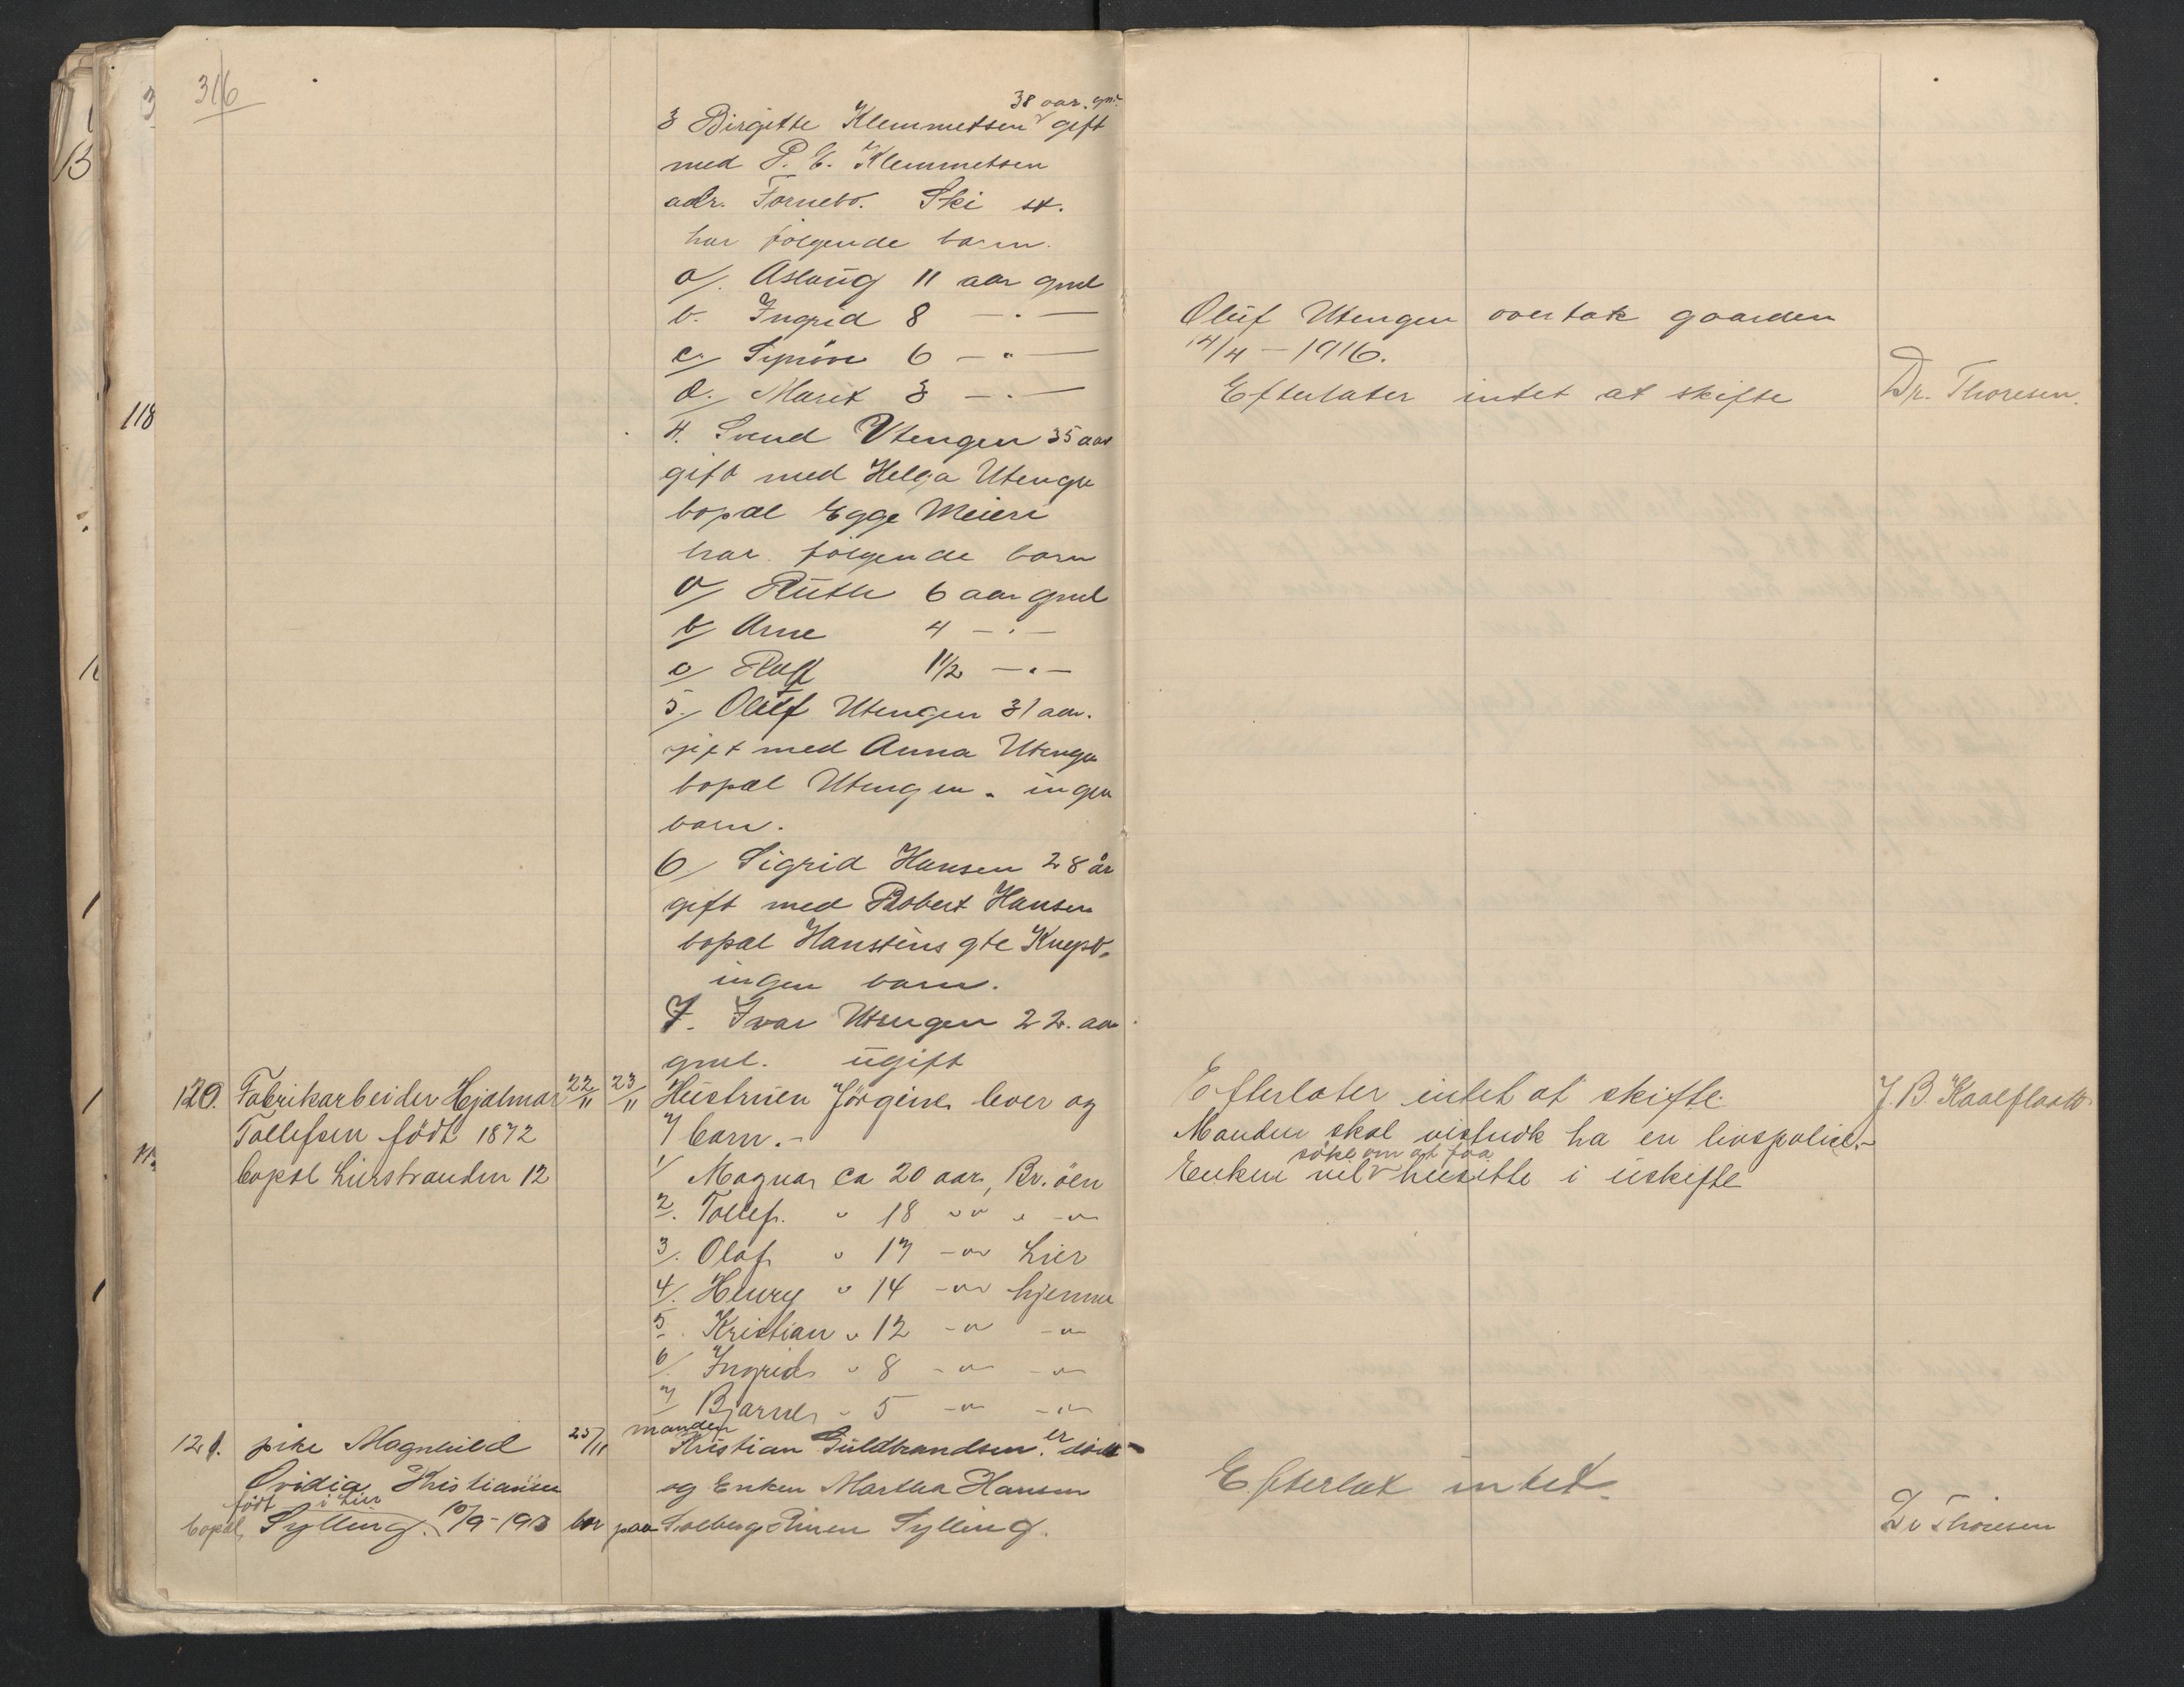 316
38 aar. gml
3 Birgitte Klemmetsen gift
med P. E. Klemmetsen
adr. Fornebo. Ski st.
har følgende barn.
a/. Aslaug 11 aar gml
b. Ingrid 8 — . —
c/ Synöve 6 — " —
d. Marit 3 — . —
4. Svend Utengen 35 aar
gift med Helga Utengen
bopæl Egge Meieri
har følgende barn
a/ Ruth 6 aar gml
b/ Arne 4 — . —
c/ Rolf 1 1/2 — . —
5./ Oluf Utengen 31 aar.
gift med Anna Utengen
bopæl Utengen. ingen
barn.
6/ Sigrid Hansen 28 år
gift med Robert Hansen
bopæl Hansteens gte
ingen barn.
7. Ivar Utengen 22. aar
gml. ugift
Oluf Utengen overtok gaarden
14/4 - 1916.
Efterlater intet at skifte
Dr. Thoresen.
118
120. Fabrikarbeider Hjalmar 22/11 23/11
Tollefsen født 1872
bopæl Lierstranden 12
Hustruen Jörgine lever og
7 barn.-
1/ Magnar ca 20 aar, Br.öen
2. Tollef. " 18 " " " - " -
3. Olaf " 17 - " - Lier
4/. Henry " 14 - " - hjemme
5. Kristian " 12 - " - - " -
6/. Ingrid " 8 - " - - " -
7/ Bjarne " 5 - " - - " -
Efterlater intet at skifte.
Manden skal visstnok ha en livspolice.-
søke om at faa
Enken vil hensitte i uskifte
J. B. Kaalflaatt
121. pike Magnhild 25/11
Ovidia Kristiansen
født i Lier
bopæl Sylling. 10/9-1913
manden
Kristian Guldbrandsen er död
og Enken Martha Hansen
bor paa Solberg Sylling.
Efterlat intet.
Dr Thoresen